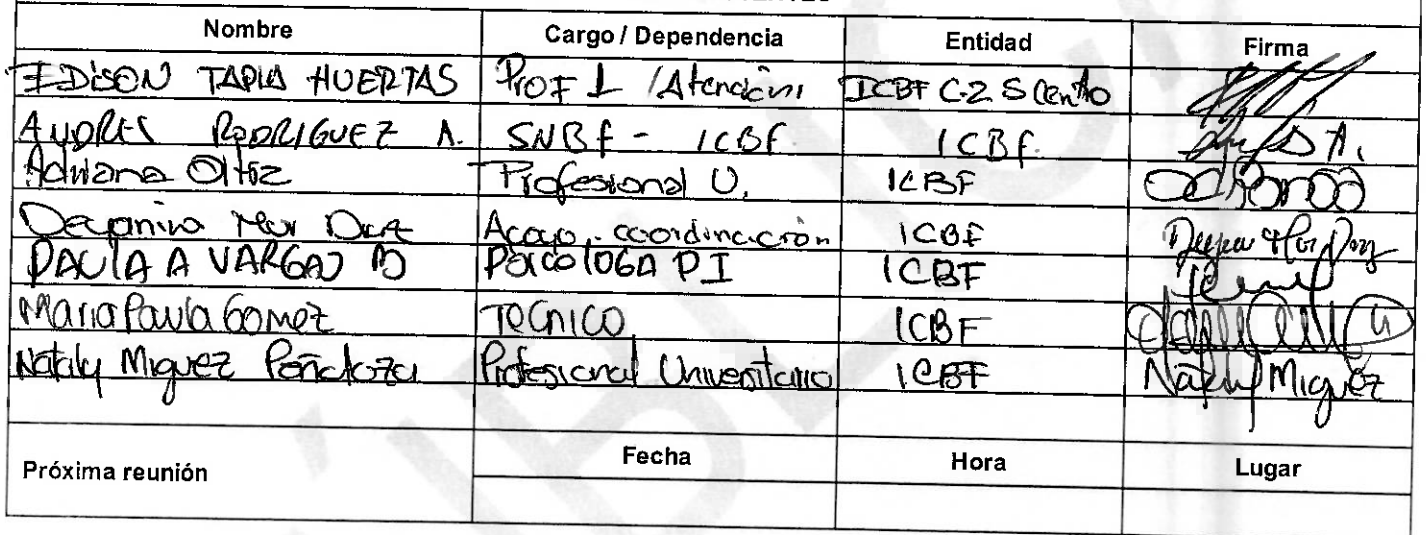 Nombre Cargo / Dependencia Entidad Firma
EDISON TAPIA HUERTAS Prof 1 / Atención ICBF C-Z S Cento
ANDRES RODRIGUEZ A. SNBf - ICBF ICBf.
Adriana Ortiz Profesional U. ICBF
Deyanira Diaz Apoyo. coordinación ICBF
PAULA A VARGAS PSICOLOGA PI ICBF
Maria Paula Gomez TECNICO ICBF
Nataly Miguez Peñaloza Profesional Universitario ICBF Nataly Miguez
Próxima reunión Fecha Hora Lugar